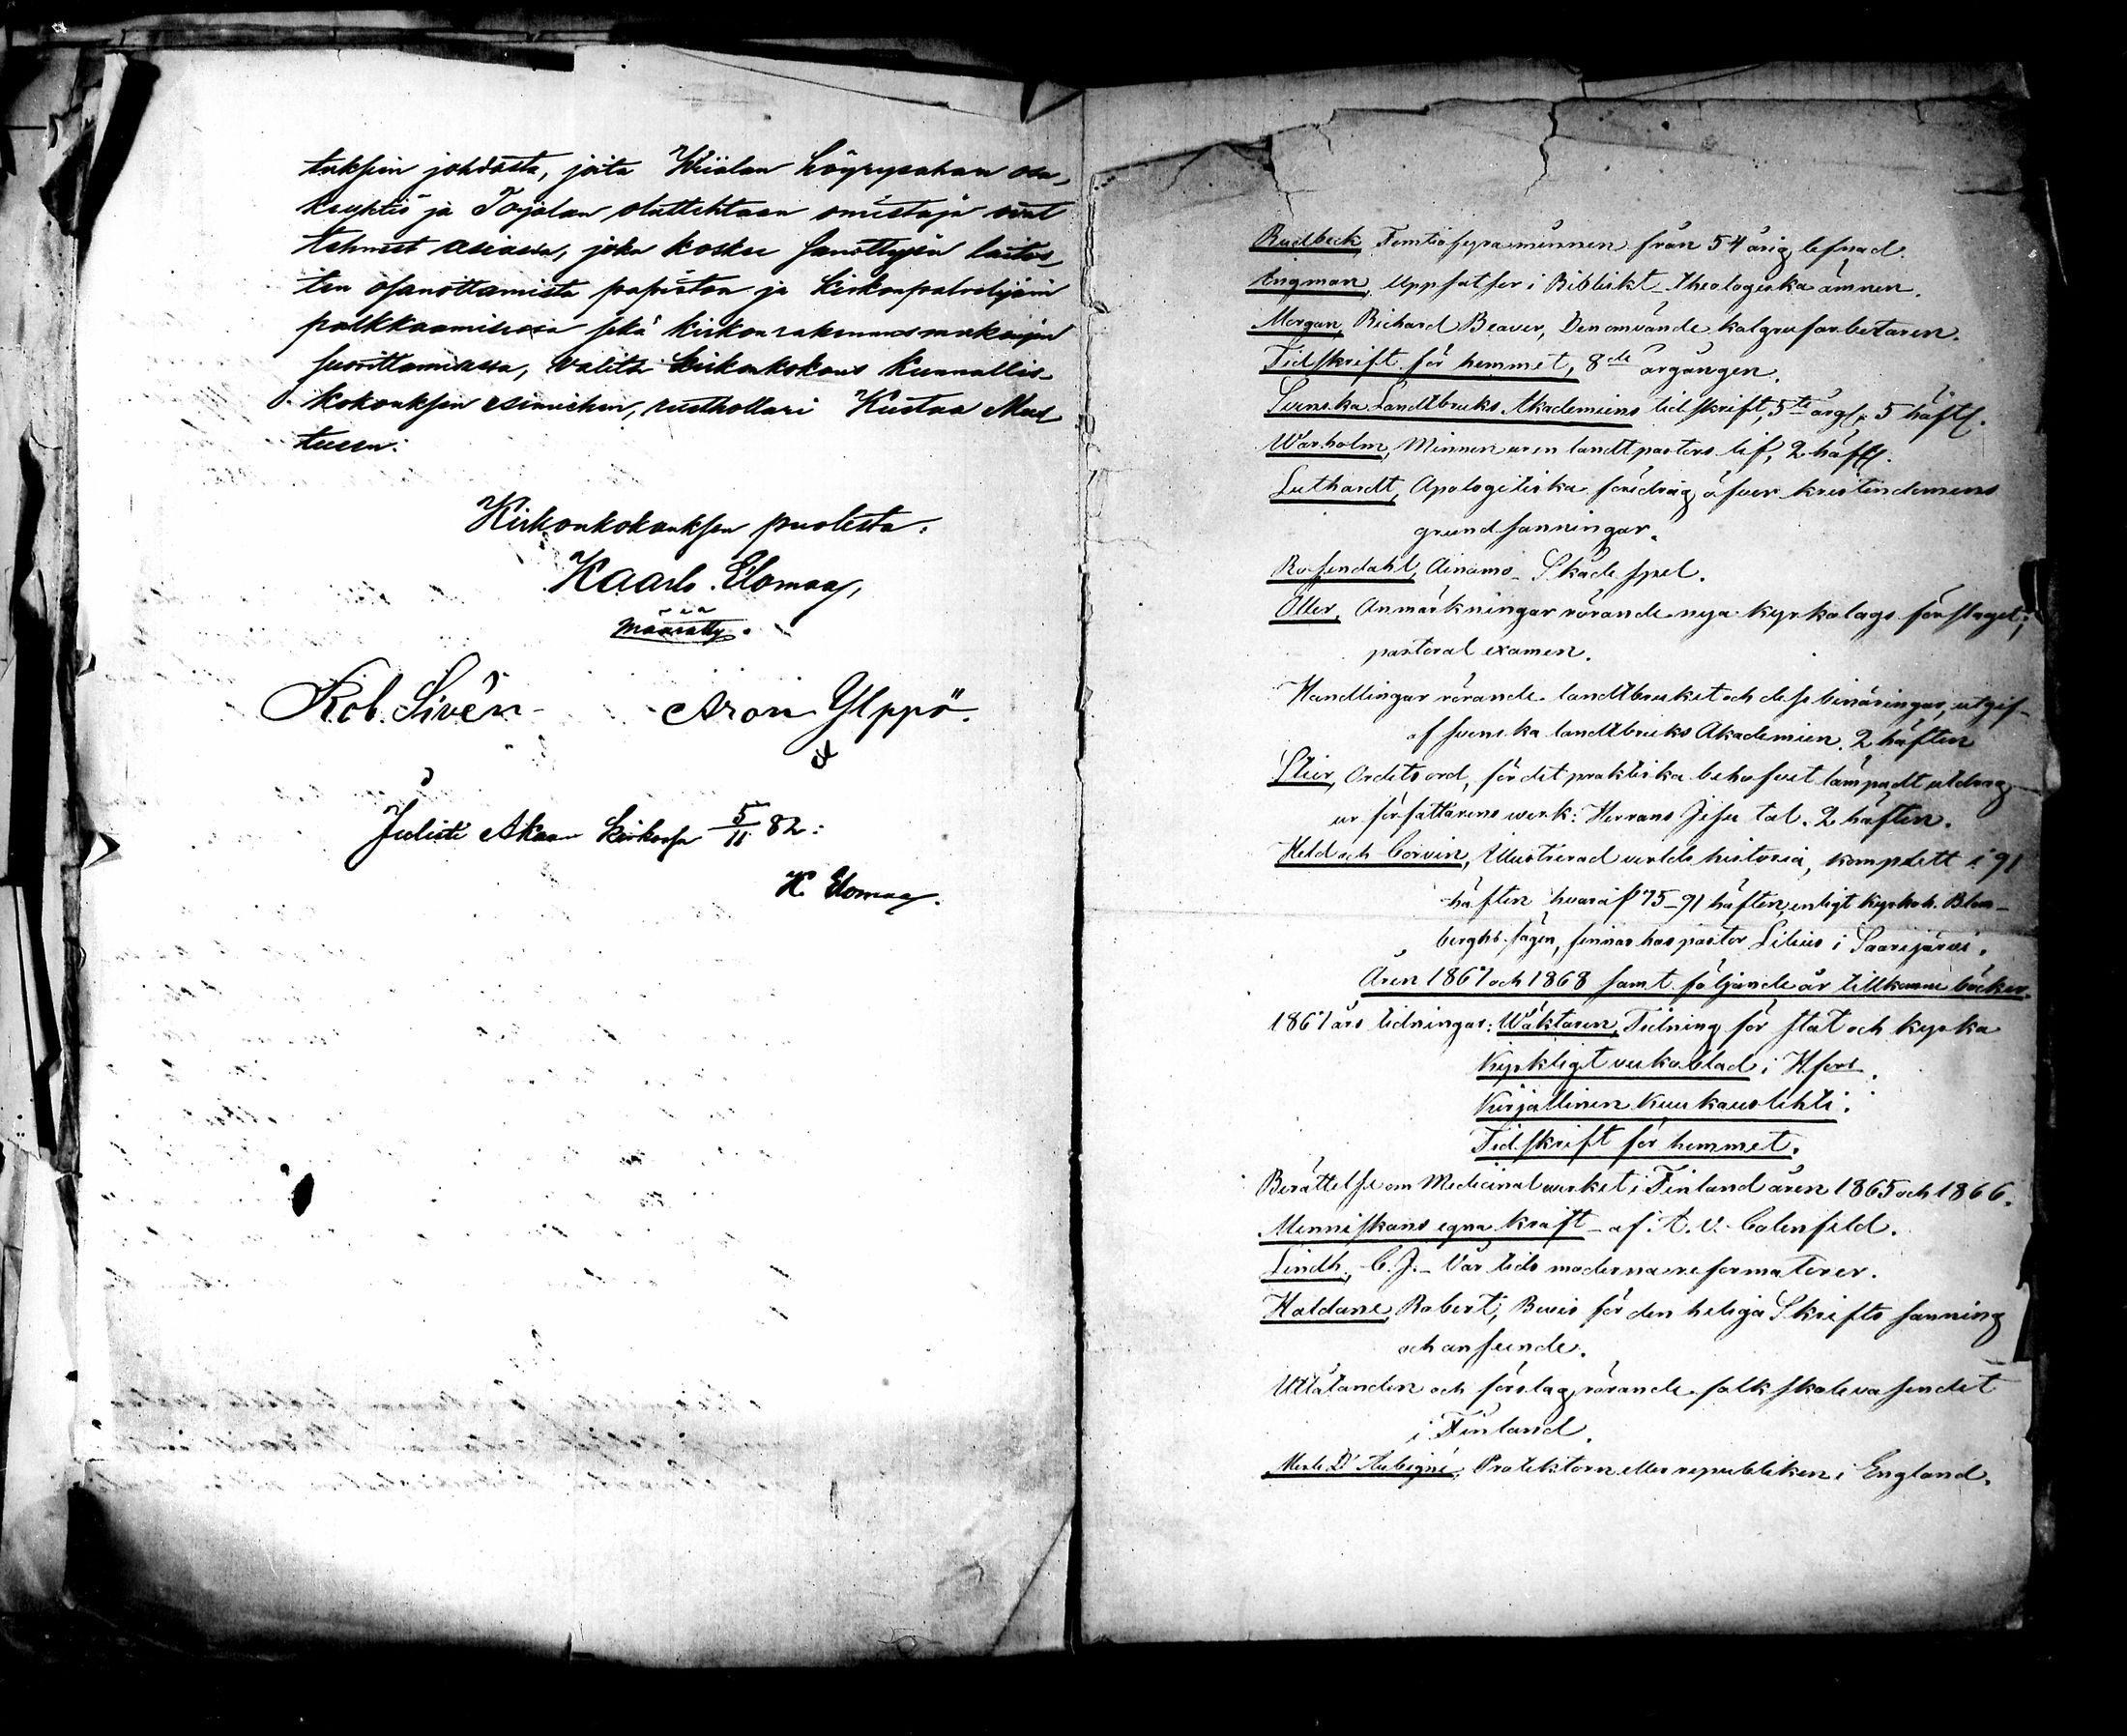 tuksien johdosta, joita Kiialan höyrysahan osa-
keyhtiö ja Toijalan oluttehtaan omistaja ovat
tehneet asiassa, joka koskee sanottujen laitos-
ten osanottamista papiston ja kirkonpalvelijain
palkkaamisessa sekä kirkonrakennusmaksujen
suorittamisessa, valitsi kirkonkokous kunnallis-
kokouksen esimiehen, rusthollari Kustaa Mat
tusen.
Kirkonkokouksen puolesta:
Kaarlo Elomaa,
v. a.
määrätty.
Rob. Sivén Aron Ylppö.
Julisti Akaan kirkossa 5/11 82:
K. Elomaa.
Rudbeck, Femtiofyra minnen från 54 årig lefnad.
Engman, Uppsatser i Bibliskt-Theologiska ämnen.
Morgan, Richard Beaver, Den omvände kolgrufarbetaren.
Tidskrift för hemmet, 8de årgången.
Svenska Landtbruks Akademiens tidskrift, 5te årg. 5 häft.
Warholm, Minnen ur en landtpastors lif, 2 häft.
Luthardt, Apologetiska föredrag öfver kristendomens
grundsanningar.
Rosendahl, Ainamo - Skådespel.
Öller, Anmärkningar rörande nya kyrkolags förslaget;
pastoral examen.
Handlingar rörande landtbruket och dess binäringar, utgif-
af svenska landtbruks Akademien. 2 häften
Stier, Ordets ord, för det praktiska behofvet lämpadt utdrag
ur författarens werk: Herrans Jesu tal. 2 häften.
Held och Corvin, Illustrerad verlds historia, komplett i 91
häften hvaraf 75-91 häften, enligt kyrkoh. Blom-
berghs sägen, finnas hos pastor Lilius i Saarijärvi.
Åren 1867 och 1868 samt följande år tillkomne böcker.
1867 års tidningar: Wäktaren, Tidning för stat och kyrka
Kyrkligt veckoblad i Hfors.
Kirjallinen Kuukauslehti.
Tidskrift för hemmet.
Berättelse om Medicinalverket i Finland åren 1865 och 1866.
Menniskans egna kraft - af A. V. Colenfeld.
Lindh, C. J. - Vår tids moderna reformatorer.
Haldane, Robert, Bevis för den heliga Skrifts sanning
och anseende.
Utlåtanden och förslag rörande folkskolevasendet
i Finland.
Merle D'Aubigné, Protektorn eller republiken i England.